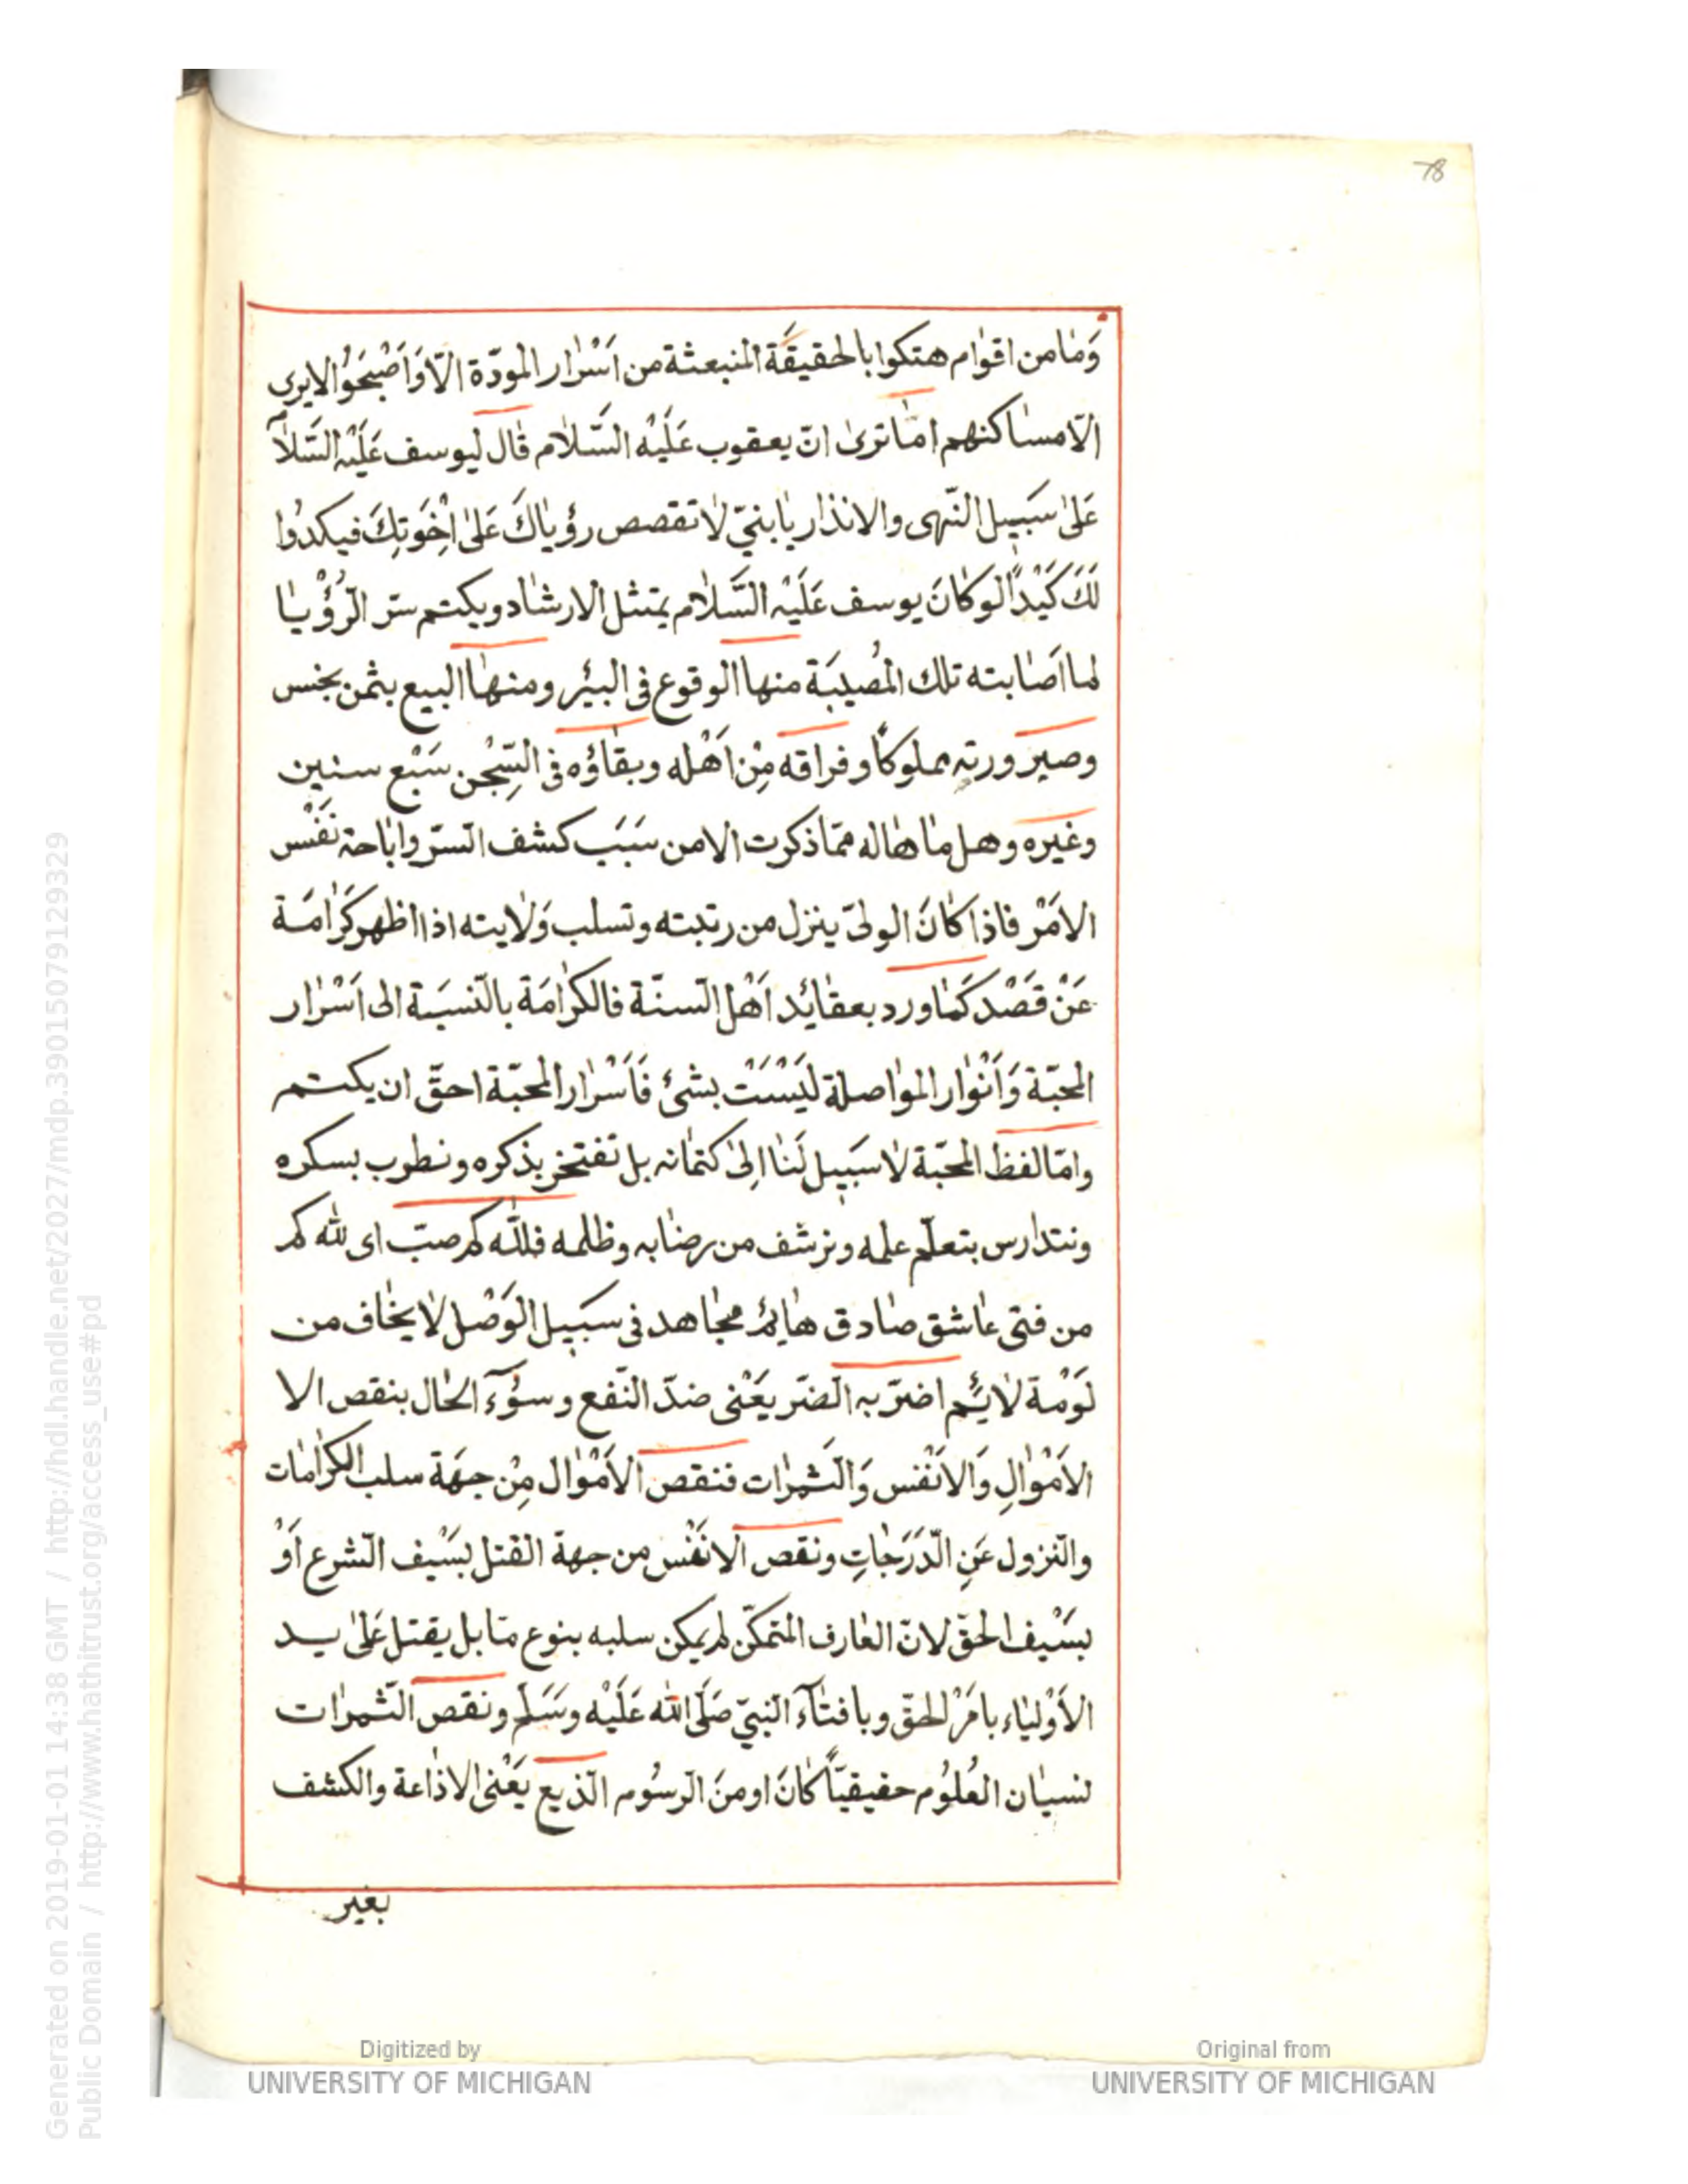 78
وَمٰا من اقوٰام هتكوا بالحقيقَة المنبعثة من اَسْرٰار المودّة الّا وَاَصْبَحُوْا لا يرى
الّا مسٰاكنهم امٰا ترىٰ انّ يعقوب عَلَيْه السَّلاٰم قٰال ليوسف عَلَيْه السَّلاٰ
عَلىٰ سَبيل النّهى والانذار يٰا بنيّ لاٰ تقصص رؤيٰاكَ عَلىٰ اِخْوَتِكَ فيكدُوا
لَكَ كَيْداً لو كٰانَ يوسف عَلَيْه السَّلاٰم يمتثل الارشٰاد ويكتم سرّ الرُؤْيٰا
لما اَصٰابته تلك المُصيبَة منها الوقوع فى البئر ومنهٰا البيع بثمن بخس
وصيرورته مملوكاً وفراقه مِنْ اَهْله وبقٰاؤه فى السِّجْن سَبْع سنين
وغيره وهل مٰا هٰاله ممّا ذكرت الا من سَبَب كشف السّر واباحة نَفْس
الامْر فاذا كٰانَ الولىّ ينزل من رتبته وتسلب وَلاٰيته اذا اظهر كَرٰامَة
عَنْ قَصْد كَمٰا ورد بعقٰائد اَهْل السنّة فالكرٰامَة بالنّسبَة الى اَسْرٰار
المحبّة وَاَنْوٰار الموٰاصلة لَيْسَتْ بشئ فَاَسْرٰار المحبّة احقّ ان يكتم
وامّا لفظ المحبّة لاٰ سَبيل لَنٰا اِلىٰ كتمٰانه بل نفتخر بذكره ونطرب بسكره
ونتدارس بتعلّم علمه ونرشف من رضٰابه وظلمه فللّه كم صبّ اى لله كم
من فتى عٰاشق صٰادق هٰائم مجٰاهد فى سَبيل الوَصْل لاٰ يخٰاف من
لَوْمة لاٰئم اضرّ به الضّر يَعْنى ضدّ النّفع وسُوٓء الحٰال بنقص الا
الاَمْوٰالِ وَالاَنْفس وَالثمرٰات فنقص الاَمْوٰال مِنْ جهَة سلب الكرٰامٰات
والنّزول عَنِ الدّرَجٰاتِ ونقص الانفْس من جهة القتل بسَيْف الشّرع اَوْ
بسَيْف الحقّ لانّ العٰارف المتمكّن لم يمكن سلبه بنوع مّا بل يقتل عَلىٰ يد
الاَوْليٰاء بامَرْ الحقّ وبافتٰآء النبيّ صَلّى الله عَلَيْه وَسَلّم ونقص الثّمرٰات
نسيٰان العُلُوْم حقيقيّاً كٰانَ او منَ الرّسُوم الذّيع يَعْنى الاذٰاعة والكشف
بغير
Generated on 2019-01-01 14:38 GMT / http://hdl.handle.net/2027/mdp.39015079129329
Public Domain / http://www.hathitrust.org/access_use#pd
Digitized by
UNIVERSITY OF MICHIGAN
Original from
UNIVERSITY OF MICHIGAN